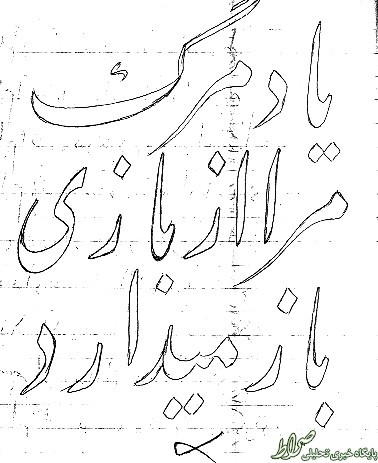 یاد مرگ
مرا از بازی
باز میدارد
صراط
پایگاه خبری تحلیلی